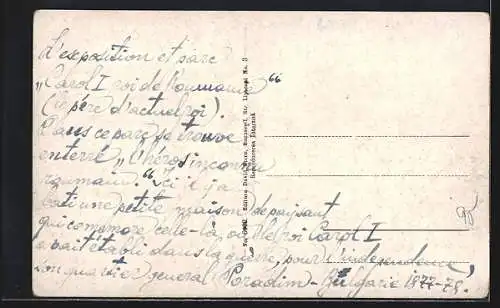 L'exposition et parc
„Carol I roi de Roumanie“
(le père d'actuel roi).
Dans ce parc se trouve
enterré „L'héros inconnu
roumain.“ Ici il y a
bati une petite maison de paysant
qui comemore celle-là où le roi Carol I
a bait établi dans la guerre, pour l'independence,
son quartier general (Poradim - Bulgarie 1877-78).
Reproducerea Interzisă
90